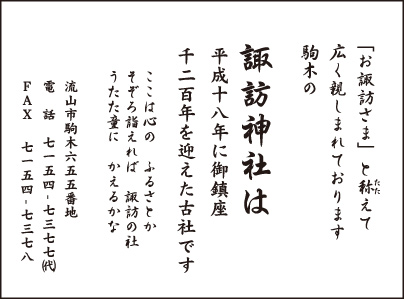 「お諏訪さま」と称えて
たた
広く親しまれております
駒木の
諏訪神社は
平成十八年に御鎮座
千二百年を迎えた古社です
ここは心の　ふるさとか
そぞろ詣えれば　諏訪の社
うたた童に　かえるかな
流山市駒木六五五番地
電　話　七一五四-七三七七㈹
ＦＡＸ　七一五四-七三七八